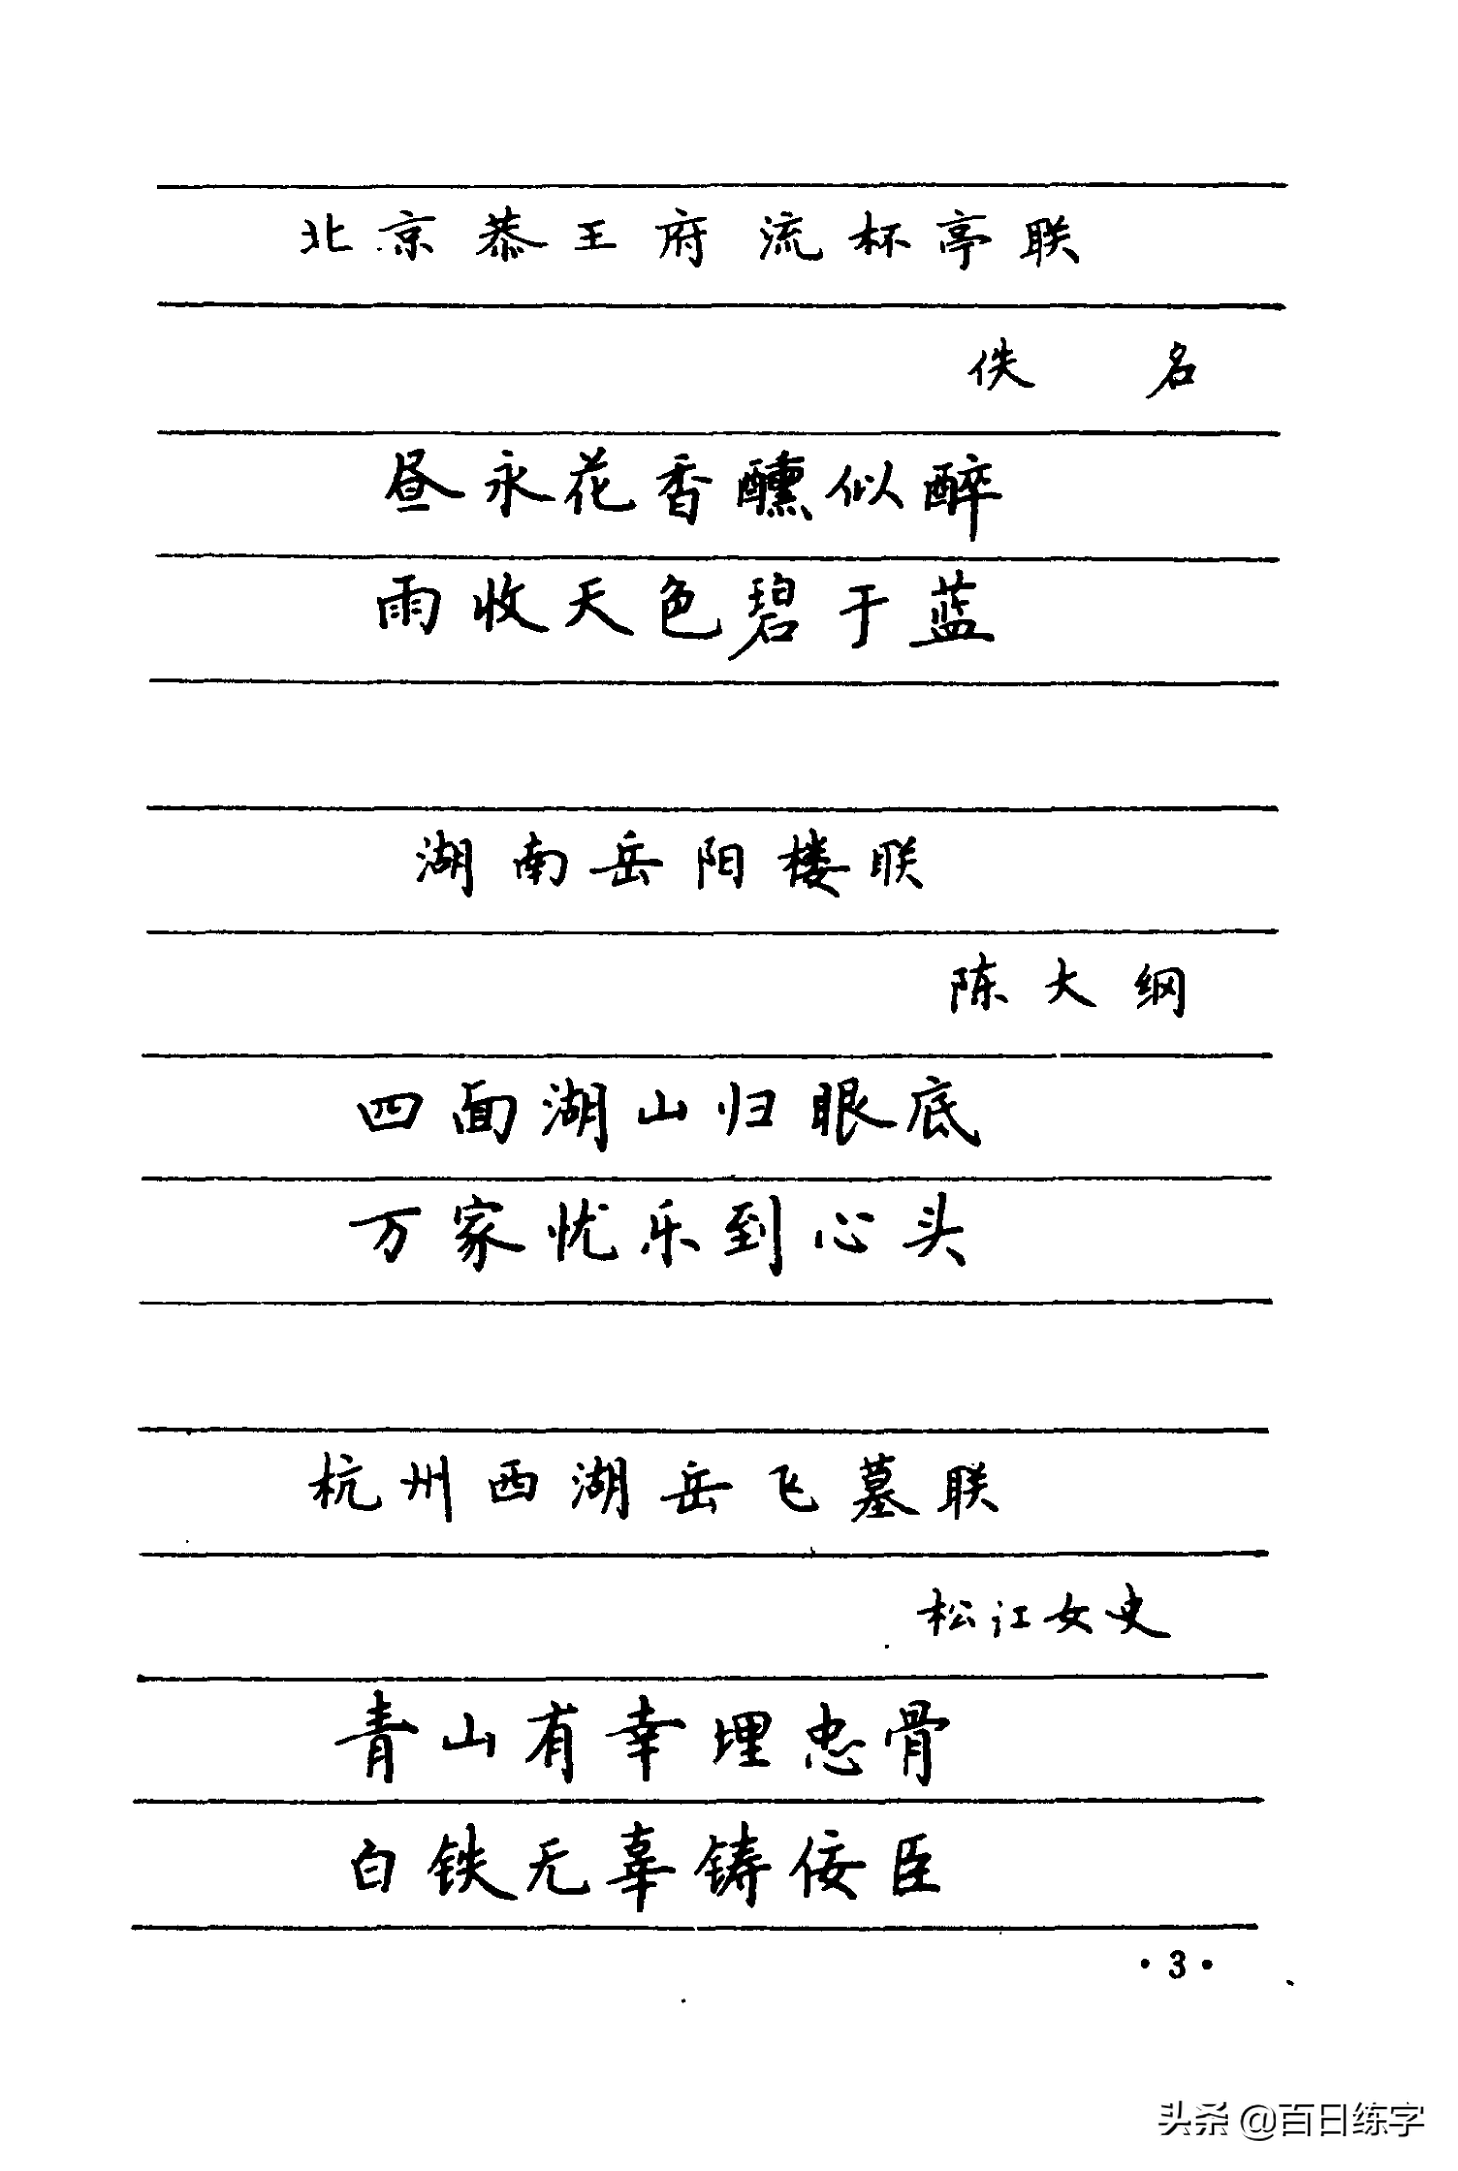 北京恭王府流杯亭联
佚 名
昼永花香醺似醉
雨收天色碧于蓝
湖南岳阳楼联
陈大纲
四面湖山归眼底
万家忧乐到心头
杭州西湖岳飞墓联
松江女史
青山有幸埋忠骨
白铁无辜铸佞臣
·3·
头条@百日练字